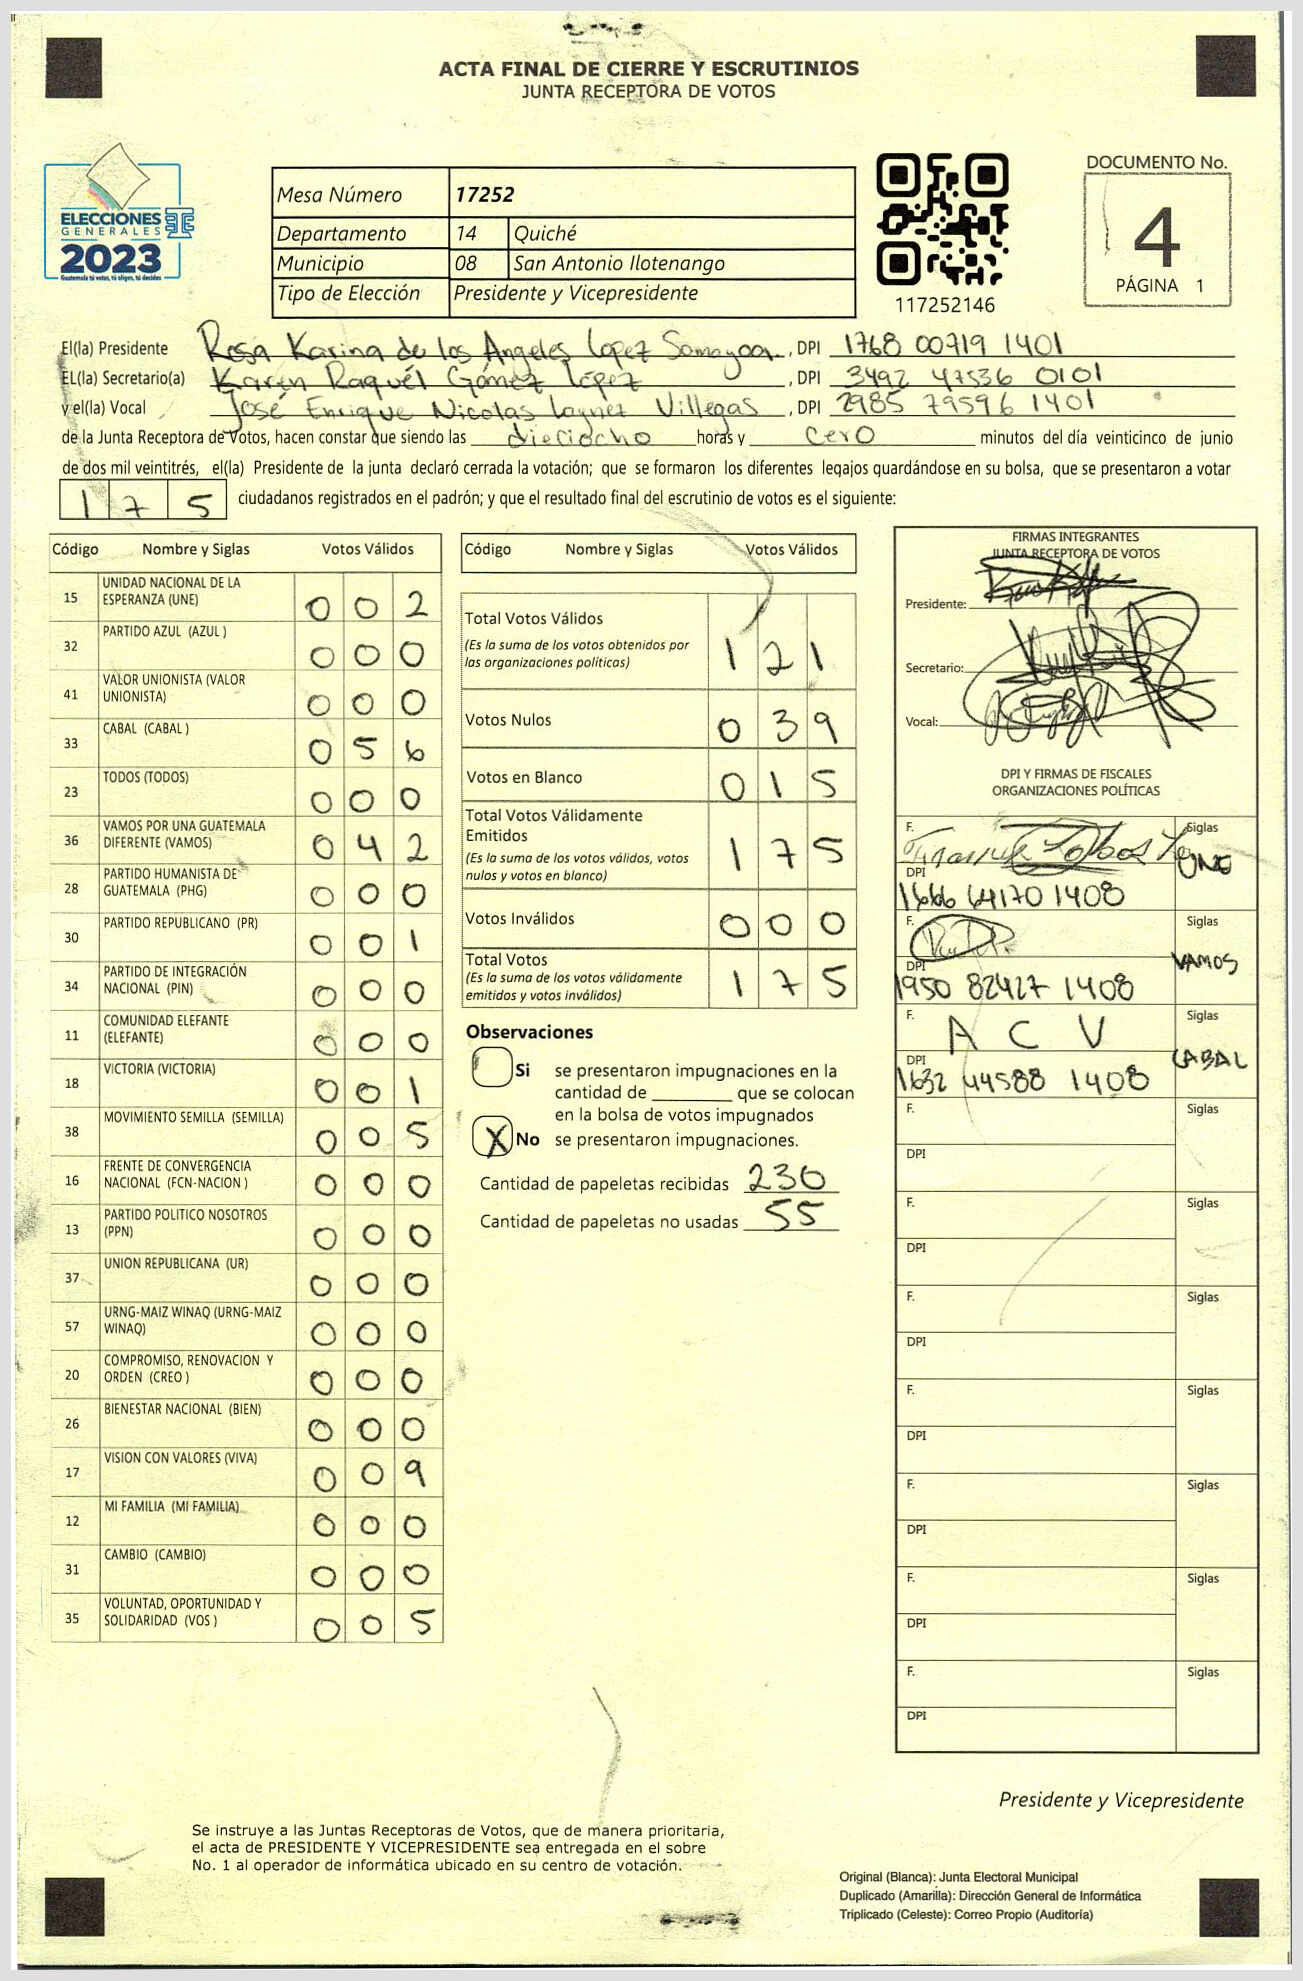 ACTA FINAL DE CIERRE Y ESCRUTINIOS
JUNTA RECEPTORA DE VOTOS
ELECCIONES
GENERALES
2023
Guatemala tú votas, tú eliges, tú decides
Mesa Número 17252
Departamento 14 Quiché
Municipio 08 San Antonio Ilotenango
Tipo de Elección Presidente y Vicepresidente
117252146
DOCUMENTO No.
4
PÁGINA 1
El(la) Presidente Rosa Karina de los Angeles Lopez Samayoa, DPI 1768 00719 1401
EL(la) Secretario(a) Karin Raquél Gómez López, DPI 3492 47536 0101
y el(la) Vocal José Enrique Nicolas Laynez Villegas, DPI 2985 79596 1401
de la Junta Receptora de Votos, hacen constar que siendo las dieciocho horas y cero minutos del día veinticinco de junio
de dos mil veintitrés, el(la) Presidente de la junta declaró cerrada la votación; que se formaron los diferentes legajos guardándose en su bolsa, que se presentaron a votar
175 ciudadanos registrados en el padrón; y que el resultado final del escrutinio de votos es el siguiente:
Código Nombre y Siglas Votos Válidos
15 UNIDAD NACIONAL DE LA ESPERANZA (UNE) 0 0 2
32 PARTIDO AZUL (AZUL ) 0 0 0
41 VALOR UNIONISTA (VALOR UNIONISTA) 0 0 0
33 CABAL (CABAL ) 0 5 6
23 TODOS (TODOS) 0 0 0
36 VAMOS POR UNA GUATEMALA DIFERENTE (VAMOS) 0 4 2
28 PARTIDO HUMANISTA DE GUATEMALA (PHG) 0 0 0
30 PARTIDO REPUBLICANO (PR) 0 0 1
34 PARTIDO DE INTEGRACIÓN NACIONAL (PIN) 0 0 0
11 COMUNIDAD ELEFANTE (ELEFANTE) 0 0 0
18 VICTORIA (VICTORIA) 0 0 1
38 MOVIMIENTO SEMILLA (SEMILLA) 0 0 5
16 FRENTE DE CONVERGENCIA NACIONAL (FCN-NACION ) 0 0 0
13 PARTIDO POLITICO NOSOTROS (PPN) 0 0 0
37 UNION REPUBLICANA (UR) 0 0 0
57 URNG-MAIZ WINAQ (URNG-MAIZ WINAQ) 0 0 0
20 COMPROMISO, RENOVACION Y ORDEN (CREO ) 0 0 0
26 BIENESTAR NACIONAL (BIEN) 0 0 0
17 VISION CON VALORES (VIVA) 0 0 9
12 MI FAMILIA (MI FAMILIA) 0 0 0
31 CAMBIO (CAMBIO) 0 0 0
35 VOLUNTAD, OPORTUNIDAD Y SOLIDARIDAD (VOS ) 0 0 5
Código Nombre y Siglas Votos Válidos
Total Votos Válidos 1 2 1
(Es la suma de los votos obtenidos por
las organizaciones políticas)
Votos Nulos 0 3 9
Votos en Blanco 0 1 5
Total Votos Válidamente
Emitidos 1 7 5
(Es la suma de los votos válidos, votos
nulos y votos en blanco)
Votos Inválidos 0 0 0
Total Votos 1 7 5
(Es la suma de los votos válidamente
emitidos y votos inválidos)
Observaciones
Si se presentaron impugnaciones en la
cantidad de ________ que se colocan
en la bolsa de votos impugnados
X No se presentaron impugnaciones.
Cantidad de papeletas recibidas 230
Cantidad de papeletas no usadas 55
FIRMAS INTEGRANTES
JUNTA RECEPTORA DE VOTOS
Presidente:
Secretario:
Vocal:
DPI Y FIRMAS DE FISCALES
ORGANIZACIONES POLÍTICAS
F. Siglas UNE
DPI 1666 64170 1408
F. Siglas VAMOS
DPI 1950 82427 1408
F. A C V Siglas CABAL
DPI 1632 44588 1408
F. Siglas
DPI
F. Siglas
DPI
F. Siglas
DPI
F. Siglas
DPI
F. Siglas
DPI
F. Siglas
DPI
F. Siglas
DPI
Presidente y Vicepresidente
Se instruye a las Juntas Receptoras de Votos, que de manera prioritaria,
el acta de PRESIDENTE Y VICEPRESIDENTE sea entregada en el sobre
No. 1 al operador de informática ubicado en su centro de votación.
Original (Blanca): Junta Electoral Municipal
Duplicado (Amarilla): Dirección General de Informática
Triplicado (Celeste): Correo Propio (Auditoría)